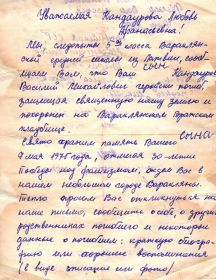 Уважаемая Кандаурова Любовь
Афанасьевна!
Мы, следопыты 5-го класса Вараклян-
ской средней школы из Латвии, сооб-
щаем Вам, что Ваш сын Кандауров
Василий Михайлович геройски погиб,
защищая священную нашу землю и
похоронен на Вараклянском братском
кладбище.
сына
Свято храним память Вашего
9 мая 1975 года, отмечая 30-летие
Победы над фашизмом, ждём Вас в
нашем небольшом городе Варакляны.
Тепло просим Вас откликнуться на
наше письмо, сообщите особо, о других
родственниках погибшего и некоторые
данные о погибшем: краткую биогра-
фию или охранные воспоминания
(в виде эпизодов или фото).